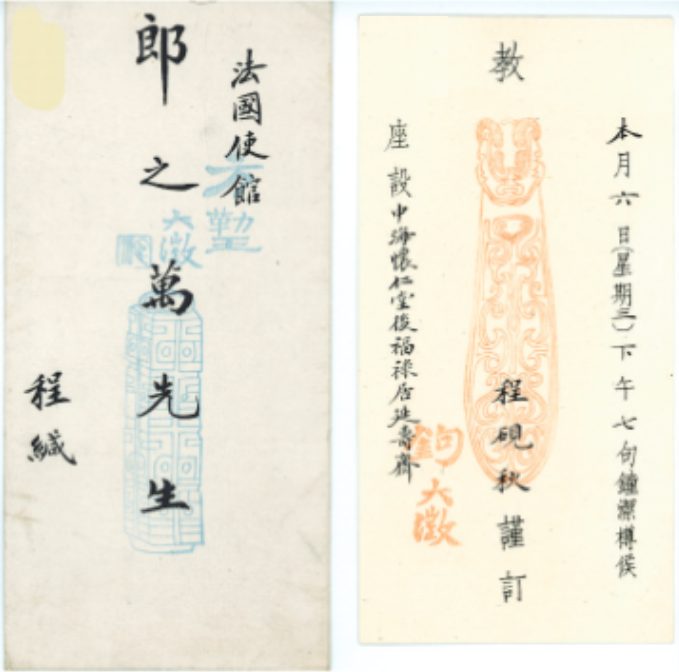 法國使館
郎之萬先生
大澂
程緘
本月六日(星期三)下午七句鐘潔樽候
教
程硯秋謹訂
座設中海懷仁堂後福祿居延壽齋
大澂